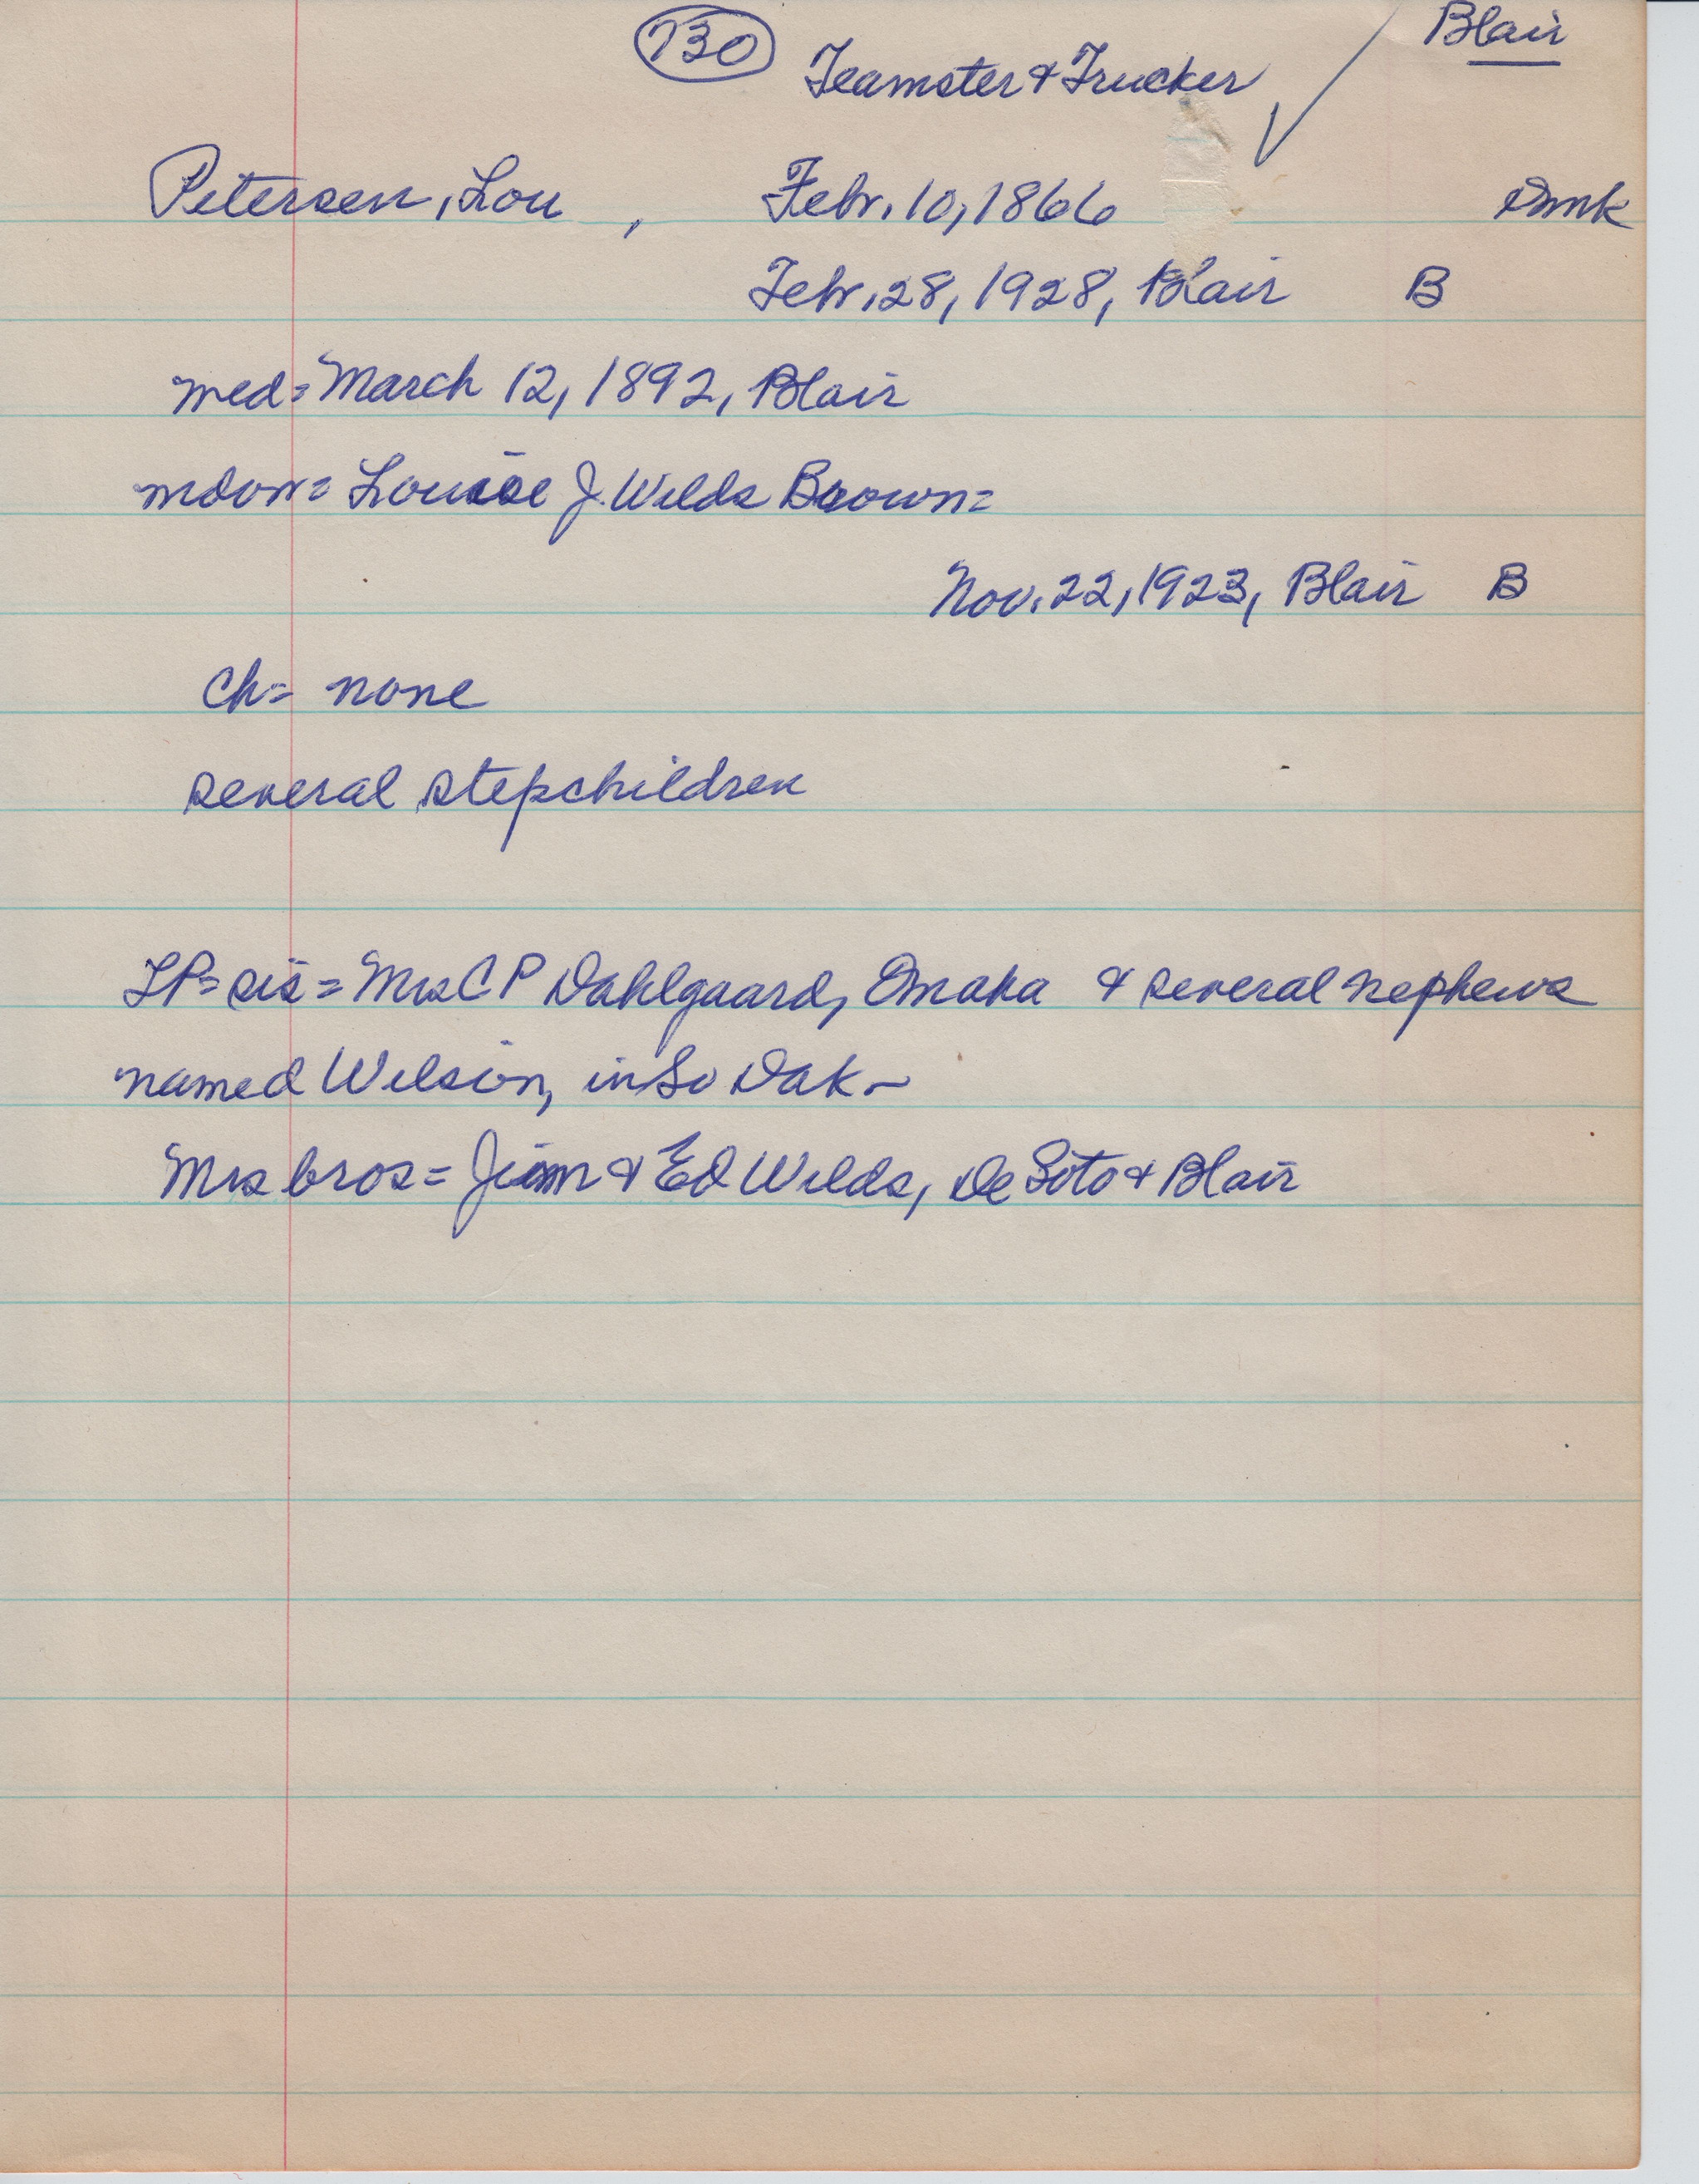 730
Teamster & Trucker
Blair
Petersen, Lou , Febr. 10, 1866 Dmk
Febr. 28, 1928, Blair B
med= March 12, 1892, Blair
Louise J. Wilds Brown=
Nov. 22, 1923, Blair B
Ch= none
several stepchildren
LP= sis= Mrs C P Dahlgaard, Omaha & several nephews
named Wilson, in So Dak-
Mrs bros= Jim & Ed Wilds, De Soto & Blair